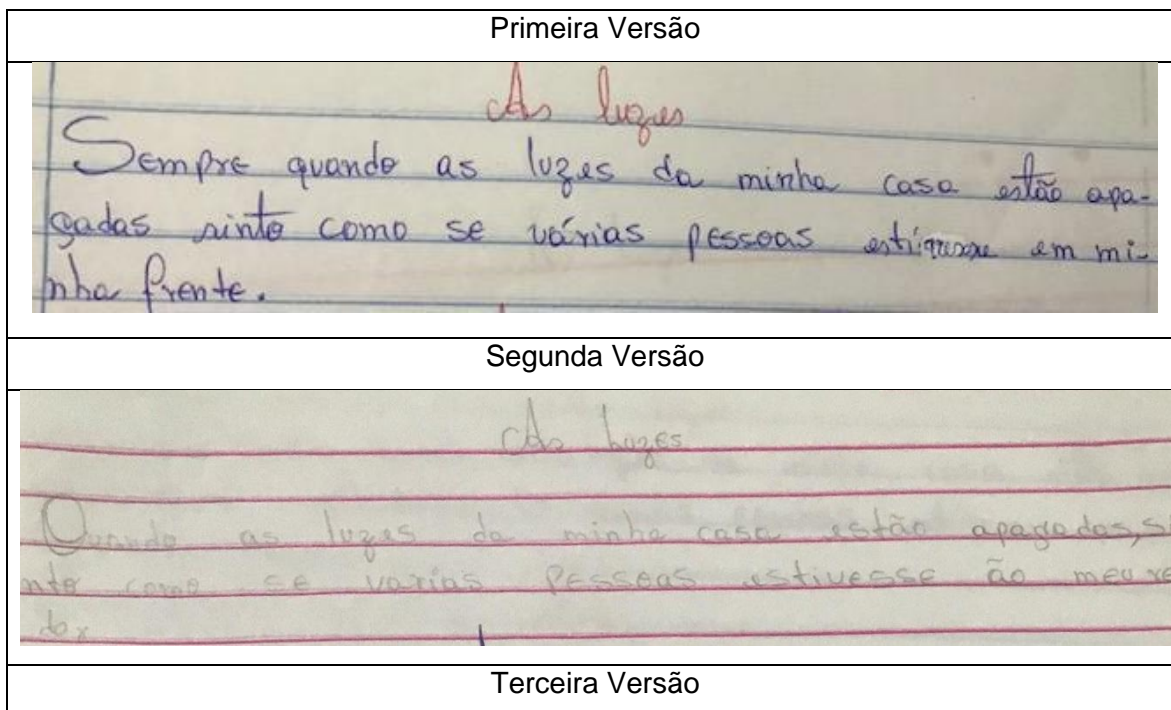 Primeira Versão
As luzes
Sempre quando as luzes da minha casa estão apa-
gadas sinto como se várias pessoas em mi-
nha frente.
Segunda Versão
As luzes
Quando as luzes da minha casa estão apagadas, si
nto como se varias pessoas estivesse ão meu re
Terceira Versão